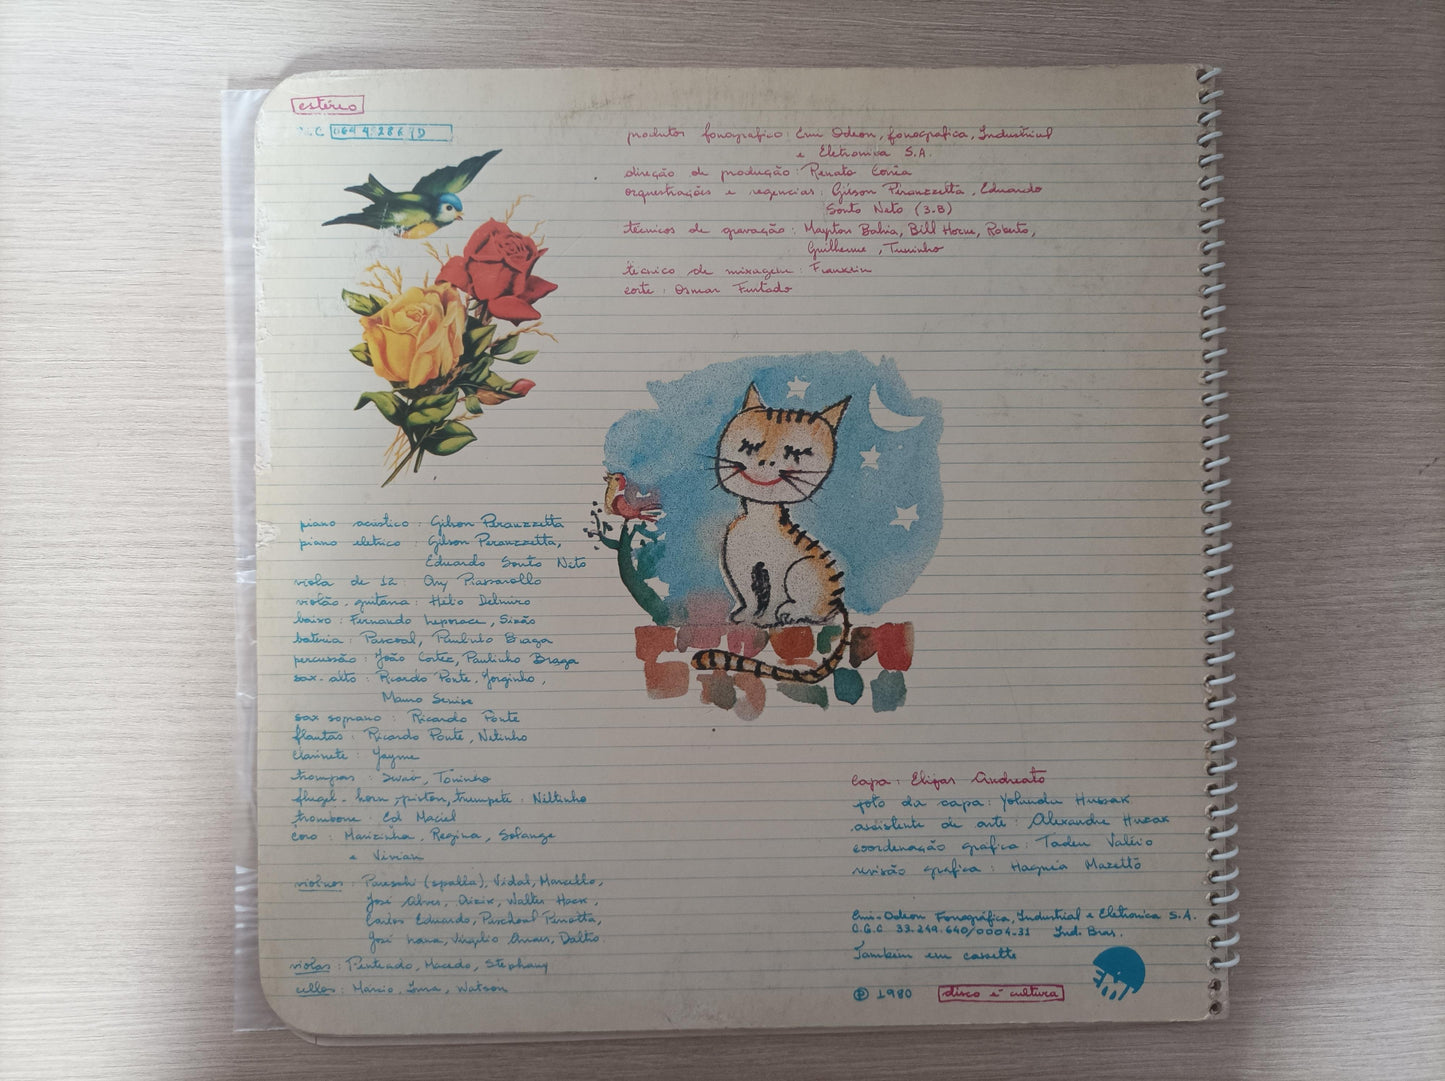 estéreo
064 422867D
produtor fonográfico: Emi Odeon, fonográfica, Industrial
e Eletronica S.A.
direção de produção: Renato Corrêa
orquestrações e regencias: Gilson Peranzzetta, Eduardo
Souto Neto (3.B)
técnicos de gravação: Mayrton Bahia, Bill Horne, Roberto,
Guilherme, Tuninho
técnico de mixagem: Franklin
corte: Osmar Furtado
piano acústico: Gilson Peranzzetta
piano eletrico: Gilson Peranzzetta,
Eduardo Souto Neto
viola de 12: Ary Piassarollo
violão, guitarra: Helio Delmiro
baixo: Fernando Leporace, Sizão
bateria: Pascoal, Paulinho Braga
percussão: João Cortez, Paulinho Braga
sax-alto: Ricardo Ponte, Jorginho,
Mauro Senise
sax soprano: Ricardo Ponte
flautas: Ricardo Ponte, Netinho
clarinete: Jayme
trompas: Toninho
flugel-horn, piston, trumpete: Niltinho
trombone: Ed Maciel
coro: Marizinha, Regina, Solange
e Vivian
violinos: Pareschi (spalla), Vidal, Marcello,
José Alves, Aizik, Walter Hack,
Carlos Eduardo, Paschoal Perrotta,
José Lana, Virgilio Arraes, Daltro.
violas: Penteado, Macedo, Stephany
cellos: Marcio, Iura, Watson
capa: Elifas Andreato
foto da capa: Yolanda Husak
assistente de arte: Alexandre Huzak
coordenação grafica: Tadeu Valério
revisão grafica: Hagneia Mazetto
Emi-Odeon Fonográfica, Industrial e Eletronica S.A.
C.G.C 33.249.640/0004.31 Ind. Bras.
Tambem em cassette
℗ 1980 disco é cultura